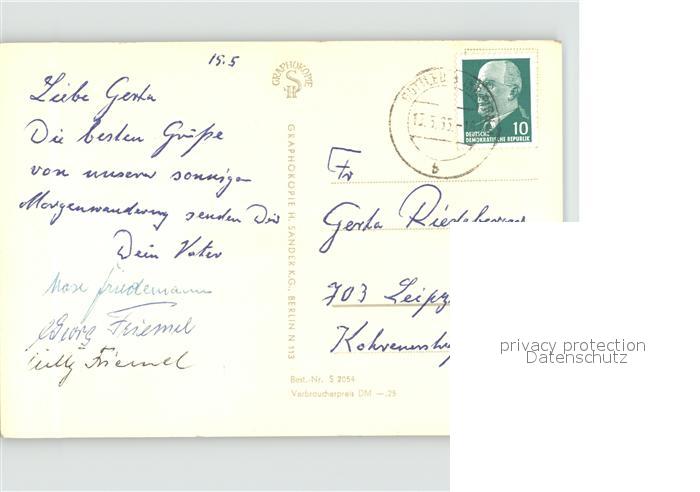 15.5
Liebe Gerta
Die besten Grüße
von unserer sonnigen
Morgenwanderung senden Dir
Dein Vater
Max Friedemann
Georg Friemel
Willy Friemel
GRAPHOKOPIE
H S
GRAPHOKOPIE H. SANDER K.G., BERLIN N 113
10
DEUTSCHE
DEMOKRATISCHE REPUBLIK
b
Fr
Gerta
703 Leipz
Best.-Nr. S 2054
Verbraucherpreis DM —.25
privacy protection
Datenschutz